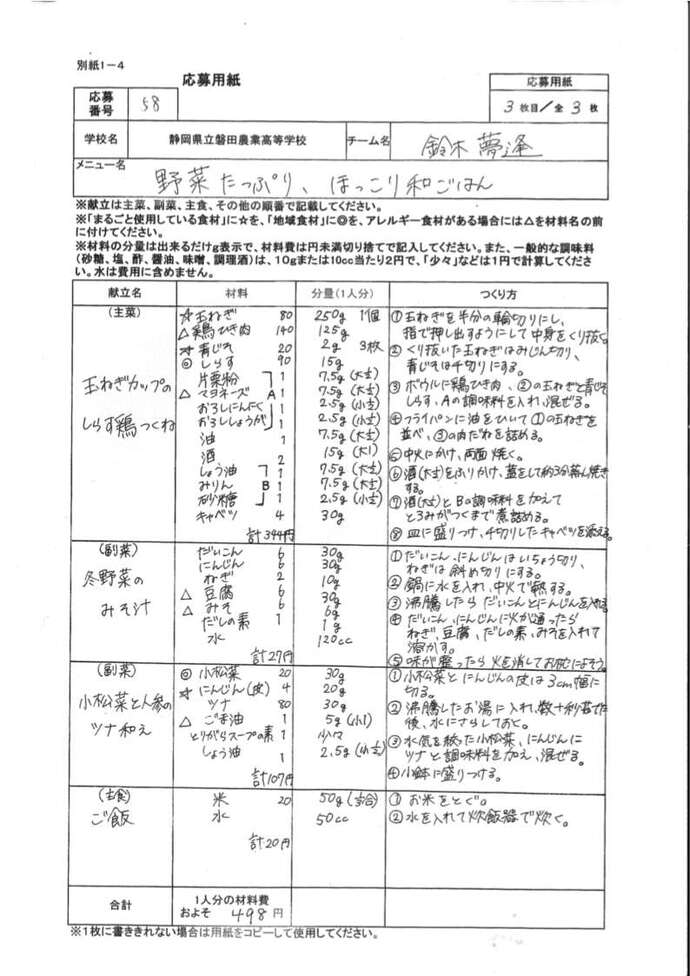 別紙1－4
応募用紙
応募用紙
応募番号 58
3枚目/全3枚
学校名 静岡県立磐田農業高等学校 チーム名 鈴木 夢逢
メニュー名
野菜たっぷり、ほっこり和ごはん
※献立は主菜、副菜、主食、その他の順番で記載してください。
※「まるごと使用している食材」に☆を、「地域食材」に◎を、アレルギー食材がある場合には△を材料名の前
に付けてください。
※材料の分量は出来るだけg表示で、材料費は円未満切り捨てで記入してください。また、一般的な調味料
（砂糖、塩、酢、醤油、味噌、調理酒）は、10gまたは10cc当たり2円で、「少々」などは1円で計算してくださ
い。水は費用に含めません。
献立名 材料 分量（1人分） つくり方
（主菜）
玉ねぎカップの
しらす鶏つくね
☆玉ねぎ 80 250g 1個
△鶏ひき肉 140 125g
☆青じそ 20 2g 3枚
◎しらす 90 15g
片栗粉 1 7.5g（大½）
△マヨネーズ A 1 7.5g（大½）
おろしにんにく 1 2.5g（小½）
おろししょうが 1 2.5g（小½）
油 1 7.5g（大½）
酒 2 15g（大1）
しょう油 1 7.5g（大½）
みりん B 1 7.5g（大½）
砂糖 1 2.5g（小½）
キャベツ 4 30g
計344円
①玉ねぎを半分の輪切りにし、
指で押し出すようにして中身をくり抜く。
②くり抜いた玉ねぎはみじん切り、
青じそは千切りにする。
③ボウルに鶏ひき肉、②の玉ねぎと青じそ
しらす、Aの調味料を入れ、混ぜる。
④フライパンに油をひいて①の玉ねぎを
並べ、③の肉だねを詰める。
⑤中火にかけ、両面焼く。
⑥酒（大½）をふりかけ、蓋をして約3分蒸し焼き
する。
⑦酒（大½）とBの調味料を加えて
とろみがつくまで煮詰める。
⑧皿に盛りつけ、千切りしたキャベツを添える。
（副菜）
冬野菜の
みそ汁
だいこん 6 30g
にんじん 6 30g
ねぎ 2 10g
△豆腐 6 30g
△みそ 6 6g
だしの素 1 1g
水 120cc
計27円
①だいこん、にんじんはいちょう切り、
ねぎは斜め切りにする。
②鍋に水を入れ、中火で熱する。
③沸騰したらだいこんとにんじんを入れる
④だいこん、にんじんに火が通ったら
ねぎ、豆腐、だしの素、みそを入れて
溶かす。
⑤味が整ったら火を消してお椀によそう。
（副菜）
小松菜と人参の
ツナ和え
◎小松菜 20 30g
☆にんじん（皮） 4 20g
ツナ 80 30g
△ごま油 1 5g（小1）
とりがらスープの素 1 少々
しょう油 1 2.5g（小½）
計107円
①小松菜とにんじんの皮は3cm幅に
切る。
②沸騰したお湯に入れ、数十秒茹でた
後、水にさらしておく。
③水気を絞った小松菜、にんじんに
ツナと調味料を加え、混ぜる。
④小鉢に盛りつける。
（主食）
ご飯
米 20 50g
水 50cc
計20円
①お米をとぐ。
②水を入れて炊飯器で炊く。
合計 1人分の材料費
およそ 498円
※1枚に書ききれない場合は用紙をコピーして使用してください。